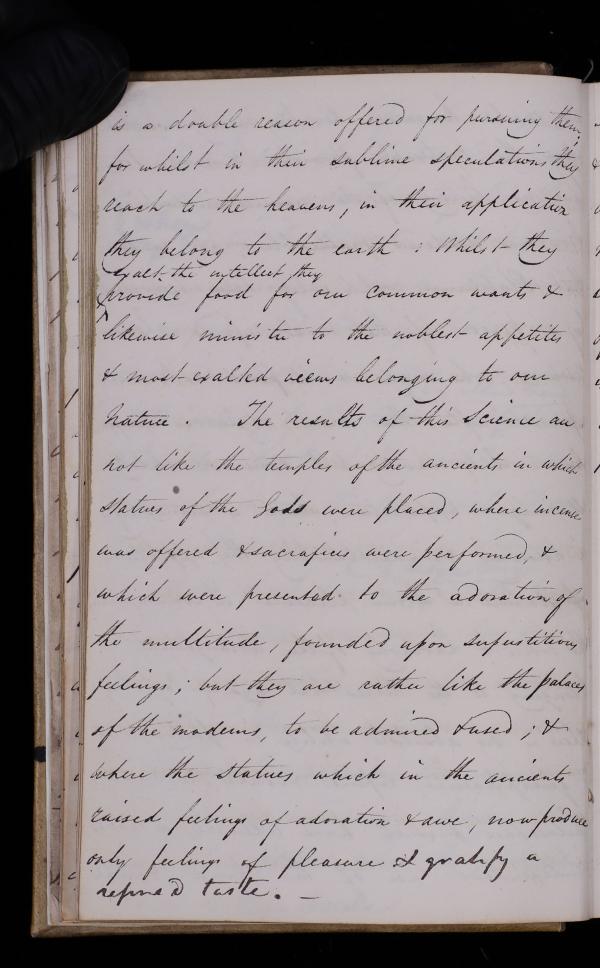 is a double reason offered for pursuing them;
for whilst in their sublime speculations they
reach to the heavens, in their application
they belong to the earth : Whilst they
exalt the intellect they
provide food for our common wants &
likewise minister to the noblest appetites
& most exalted views belonging to our
Nature. The results of this Science are
not like the temples of the ancients in which
statues of the Gods were placed, where incense
was offered & sacrafices were performed, &
which were presented to the adoration of
the multitude, founded upon superstitious
feelings; but they are rather like the palaces
of the moderns, to be admired & used; &
where the statues which in the ancients
raised feelings of adoration & awe, now produce
only feelings of pleasure & gratify a
refined taste. —